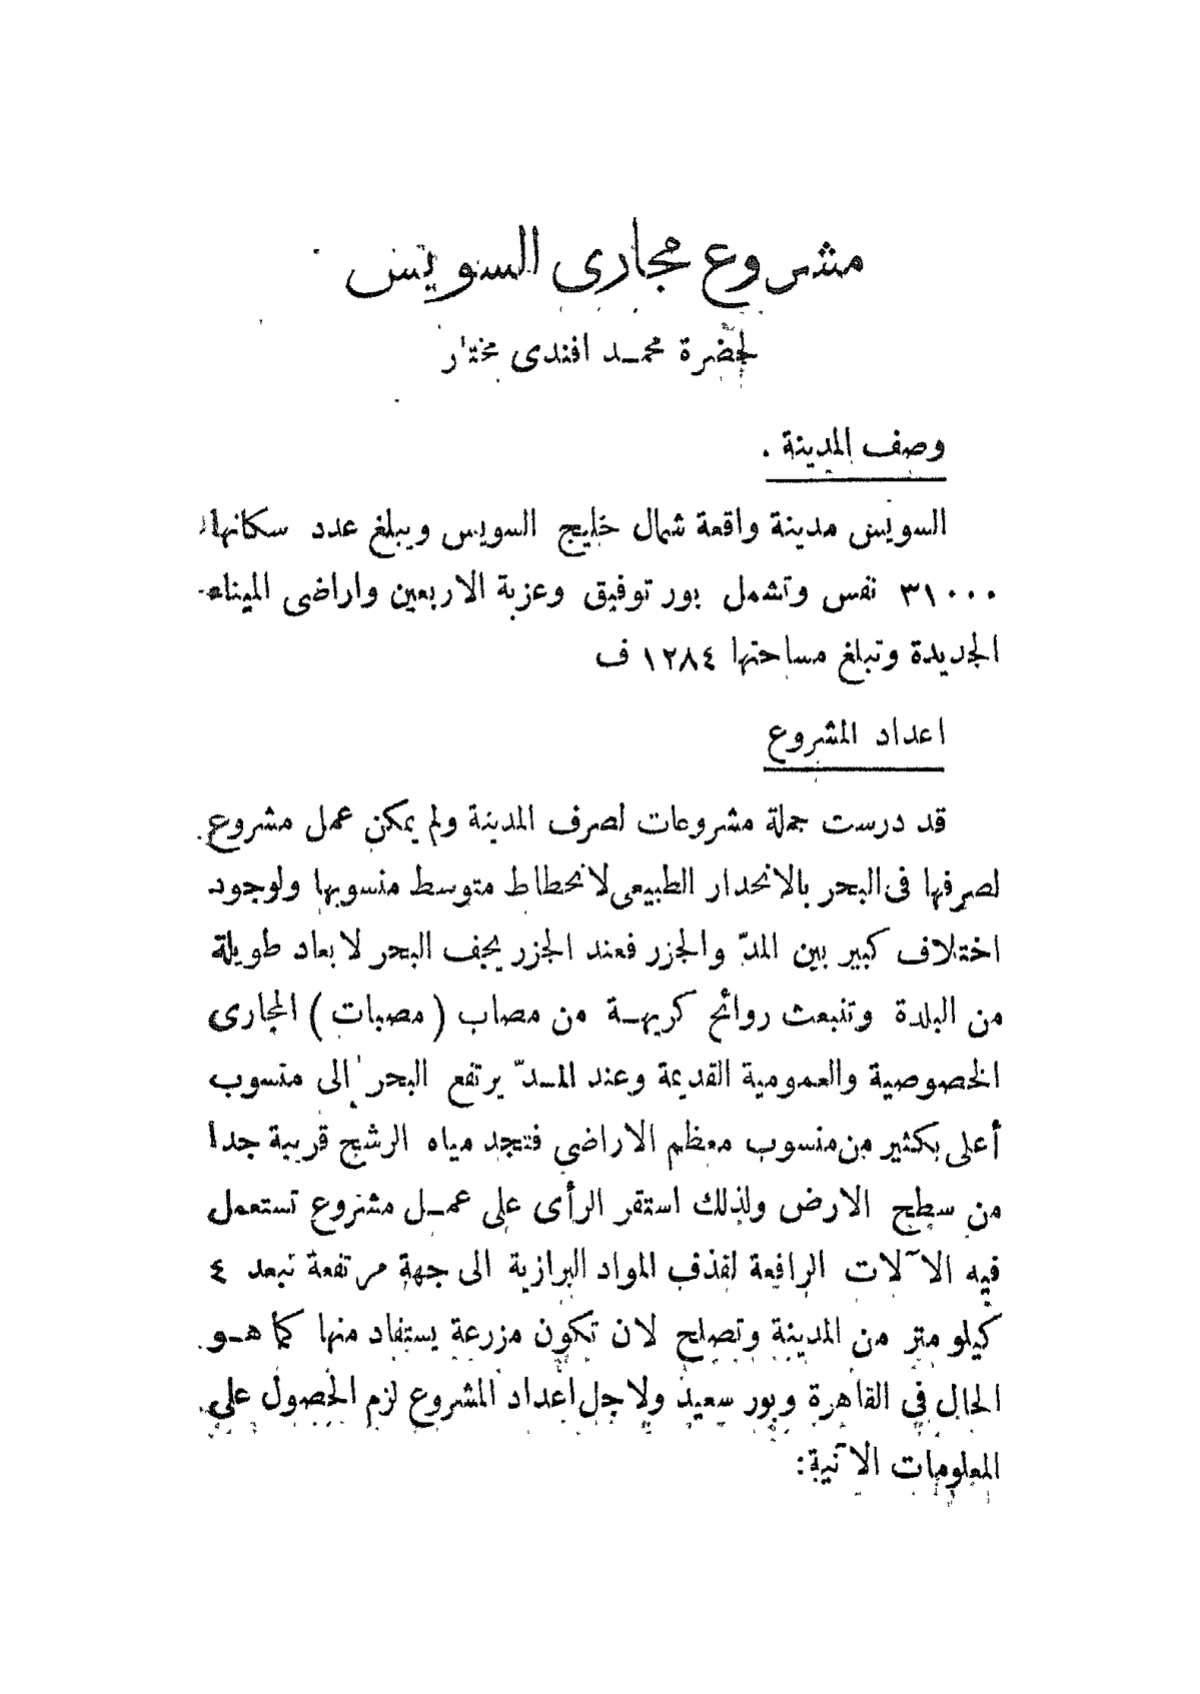 مشروع مجارى السويس
لحضرة محمد افندى مختار
وصف المدينة .
السويس مدينة واقعة شمال خليج السويس ويبلغ عدد سكانها
٣١٠٠٠ نفس وتشمل بور توفيق وعزبة الاربعين واراضى الميناء
الجديدة وتبلغ مساحتها ١٢٨٤ ف
اعداد المشروع
قد درست جملة مشروعات لصرف المدينة ولم يمكن عمل مشروع
لصرفها فى البحر بالانحدار الطبيعى لانحطاط متوسط منسوبها ولوجود
اختلاف كبير بين المدّ والجزر فعند الجزر يجف البحر لابعاد طويلة
من البلدة وتنبعث روائح كريهة من مصاب ( مصبات ) المجارى
الخصوصية والعمومية القديمة وعند المدّ يرتفع البحر الى منسوب
أعلى بكثير من منسوب معظم الاراضى فتجد مياه الرشح قريبة جدا
من سطح الارض ولذلك استقر الرأى على عمل مشروع تستعمل
فيه الآلات الرافعة لقذف المواد البرازية الى جهة مرتفعة تبعد ٤
كيلو متر من المدينة وتصلح لان تكون مزرعة يستفاد منها كما هو
الحال فى القاهرة وبور سعيد ولاجل اعداد المشروع لزم الحصول على
المعلومات الآتية: